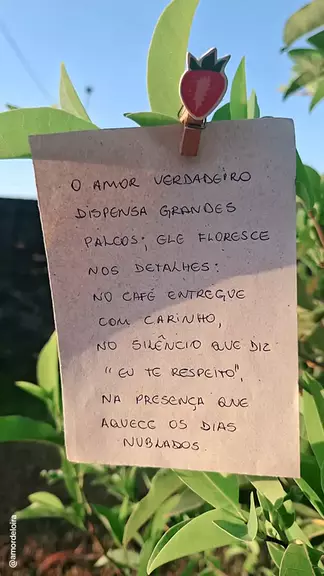 O AMOR VERDADEIRO
DISPENSA GRANDES
PALCOS; ELE FLORESCE
NOS DETALHES:
NO CAFÉ ENTREGUE
COM CARINHO,
NO SILÊNCIO QUE DIZ
"EU TE RESPEITO",
NA PRESENÇA QUE
AQUECE OS DIAS
NUBLADOS.
@amordeloira